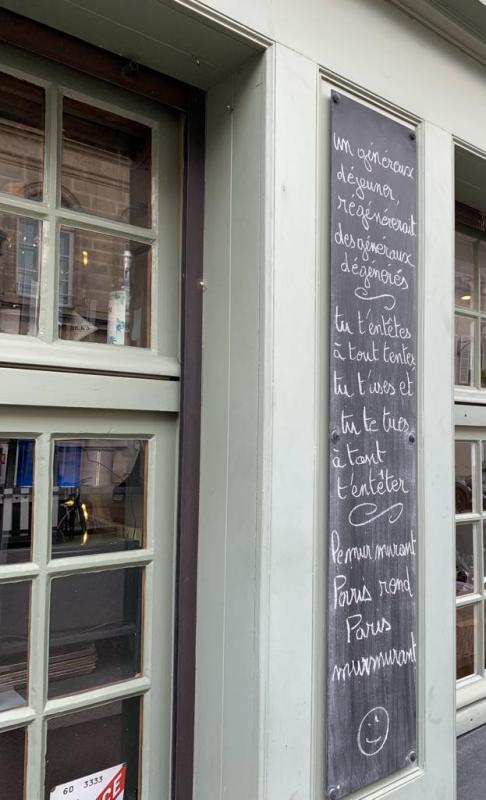 un généreux
déjeuner,
régénérerait
des généraux
dégénérés
tu t'entêtes
à tout tenter
tu t'uses et
tu te tues
à tant
t'entêter
Le mur murant
Paris rond
Paris
murmurant
60 3333